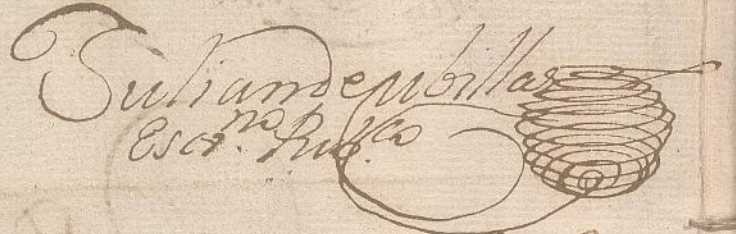 Juliandeubillas
Escrno. Pubco.